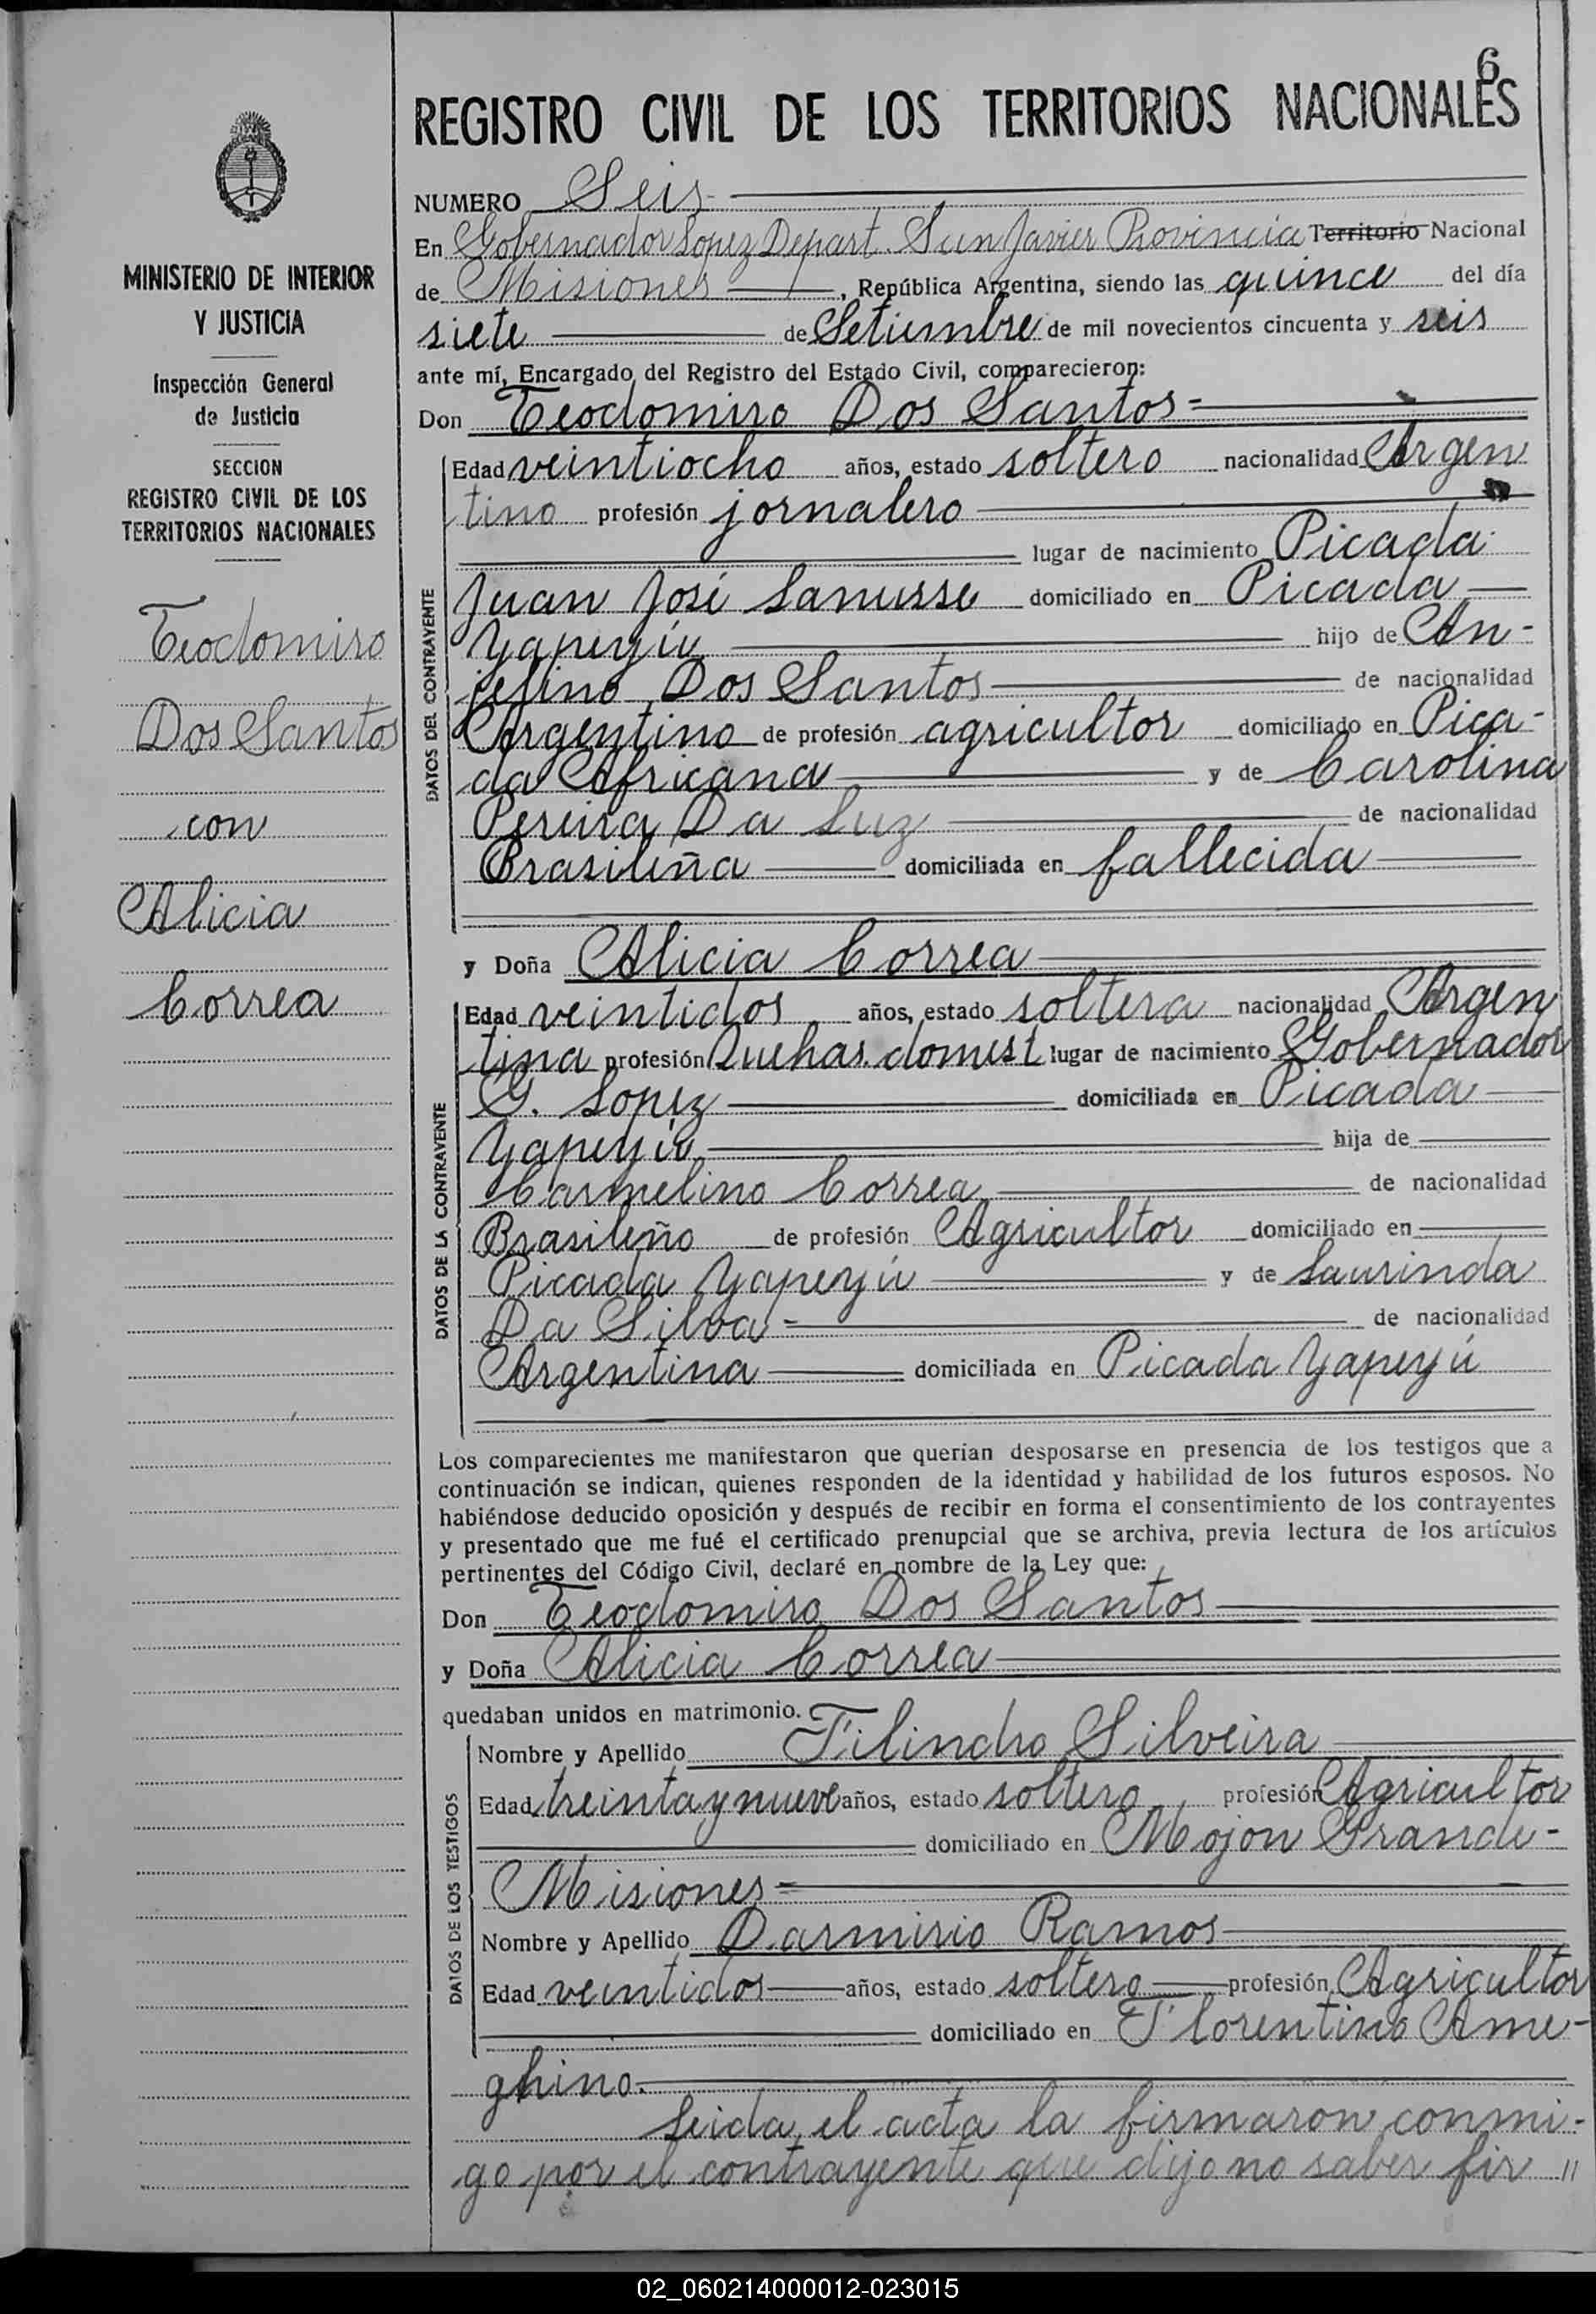 6
REGISTRO CIVIL DE LOS TERRITORIOS NACIONALES
MINISTERIO DE INTERIOR
Y JUSTICIA
Inspección General
de Justicia
SECCION
REGISTRO CIVIL DE LOS
TERRITORIOS NACIONALES
Teodomiro
Dos Santos
con
Alicia
Correa
NUMERO Seis
En Gobernador Lopez Depart. San Javier Provincia Territorio Nacional
de Misiones, República Argentina, siendo las quince del día
siete de Setiembre de mil novecientos cincuenta y seis
ante mí, Encargado del Registro del Estado Civil, comparecieron:
Don Teodomiro Dos Santos=
DATOS DEL CONTRAYENTE
Edad veintiocho años, estado soltero nacionalidad Argen
tino profesión jornalero
lugar de nacimiento Picada
Juan José Lanusse domiciliado en Picada
Yapeyú hijo de An-
jelino Dos Santos de nacionalidad
Argentino de profesión agricultor domiciliado en Pica-
da Africana y de Carolina
Pereira Da Luz de nacionalidad
Brasileña domiciliada en fallecida
y Doña Alicia Correa
DATOS DE LA CONTRAYENTE
Edad veintidos años, estado soltera nacionalidad Argen
tina profesión Quehas. domest lugar de nacimiento Gobernador
G. Lopez domiciliada en Picada
Yapeyú hija de
Carmelino Correa de nacionalidad
Brasileño de profesión Agricultor domiciliado en
Picada Yapeyú y de Laurinda
Da Silva= de nacionalidad
Argentina domiciliada en Picada Yapeyú
Los comparecientes me manifestaron que querían desposarse en presencia de los testigos que a
continuación se indican, quienes responden de la identidad y habilidad de los futuros esposos. No
habiéndose deducido oposición y después de recibir en forma el consentimiento de los contrayentes
y presentado que me fué el certificado prenupcial que se archiva, previa lectura de los artículos
pertinentes del Código Civil, declaré en nombre de la Ley que:
Don Teodomiro Dos Santos
y Doña Alicia Correa
quedaban unidos en matrimonio.
DATOS DE LOS TESTIGOS
Nombre y Apellido Filindro Silveira
Edad treinta y nueve años, estado soltero profesión Agricultor
domiciliado en Mojon Grande-
Misiones=
Nombre y Apellido Darmirio Ramos
Edad veintidos años, estado soltero profesión Agricultor
domiciliado en Florentino Ame-
ghino.
Leida el acta la firmaron conmi-
go por el contrayente que dijo no saber fir "
02_060214000012-023015